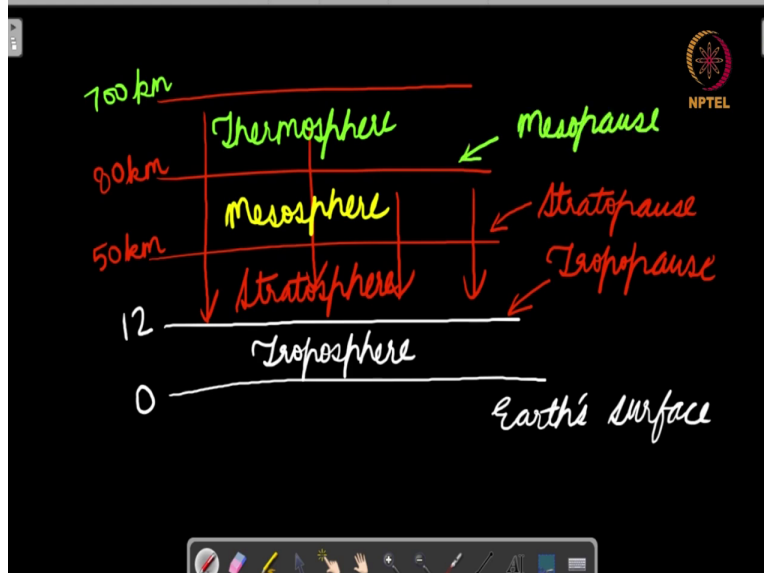 NPTEL
700km
Thermosphere
Mesopause
80km
Mesosphere
Stratopause
50km
Stratosphere
Tropopause
12
Troposphere
0
Earth's surface